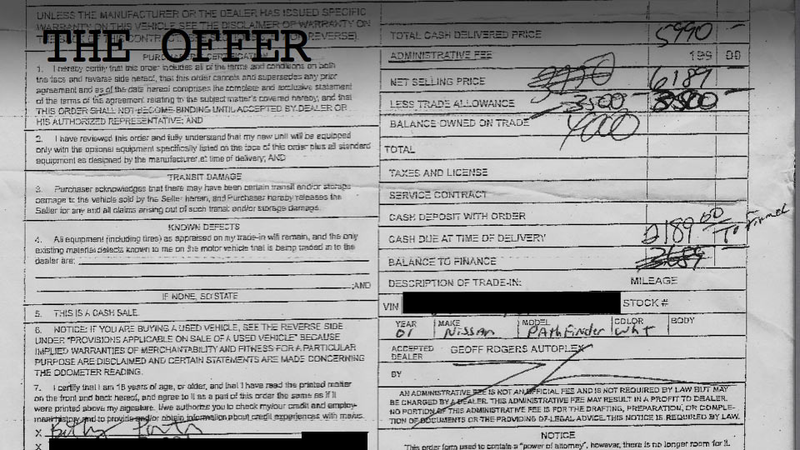 UNLESS THE MANUFACTURER OR THE DEALER HAS ISSUED SPECIFIC
WARRANTY ON THIS VEHICLE SEE THE DISCLAIMER OF WARRANTY ON
REVERSE).
THE OFFER
1. I hereby certify that this order includes all of the terms and conditions on both
the face and reverse side hereof, that this order cancels and supersedes any prior
agreement and as of the date hereof comprises the complete and exclusive statement
of the terms of the agreement relating to the subject matters covered hereby; and that
THIS ORDER SHALL NOT BECOME BINDING UNTIL ACCEPTED BY DEALER OR
HIS AUTHORIZED REPRESENTATIVE; AND
2. I have reviewed this order and fully understand that my new unit will be equipped
only with the optional equipment specifically listed on the face of this order plus all standard
equipment as designed by the manufacturer at time of delivery; AND
TRANSIT DAMAGE
3. Purchaser acknowledges that there may have been certain transit and/or storage
damage to the vehicle sold by the Seller herein, and Purchaser hereby releases the
Seller for any and all claims arising out of such transit and/or storage damage.
KNOWN DEFECTS
4. All equipment (including tires) as appraised on my trade-in will remain, and the only
existing material defects known to me on the motor vehicle that is being traded in to the
dealer are:
;AND
IF NONE, SO STATE
5. THIS IS A CASH SALE.
6. NOTICE: IF YOU ARE BUYING A USED VEHICLE, SEE THE REVERSE SIDE
UNDER "PROVISIONS APPLICABLE ON SALE OF A USED VEHICLE" BECAUSE
IMPLIED WARRANTIES OF MERCHANTABILITY AND FITNESS FOR A PARTICULAR
PURPOSE ARE DISCLAIMED AND CERTAIN STATEMENTS ARE MADE CONCERNING
THE ODOMETER READING.
7. I certify that I am 18 years of age, or older, and that I have read the printed matter
on the front and back hereof, and agree to it as a part of this order the same as if it
were printed above my signature. I/we authorize you to check my/our credit and employ-
ment history and to provide and/or obtain information about credit experiences with me/us.
X
X
TOTAL CASH DELIVERED PRICE 5990
ADMINISTRATIVE FEE 199 00
NET SELLING PRICE 6189
LESS TRADE ALLOWANCE 3500
BALANCE OWNED ON TRADE 4000
TOTAL
TAXES AND LICENSE
SERVICE CONTRACT
CASH DEPOSIT WITH ORDER
CASH DUE AT TIME OF DELIVERY 2189 00
BALANCE TO FINANCE
DESCRIPTION OF TRADE-IN: MILEAGE
VIN STOCK #
YEAR MAKE MODEL COLOR BODY
01 Nissan PathFinder Wht
ACCEPTED GEOFF ROGERS AUTOPLEX
DEALER
BY
AN ADMINISTRATIVE FEE IS NOT AN OFFICIAL FEE AND IS NOT REQUIRED BY LAW BUT MAY
BE CHARGED BY A DEALER. THIS ADMINISTRATIVE FEE MAY RESULT IN A PROFIT TO DEALER.
NO PORTION OF THIS ADMINISTRATIVE FEE IS FOR THE DRAFTING, PREPARATION, OR COMPLE-
TION OF DOCUMENTS OR THE PROVIDING OF LEGAL ADVICE. THIS NOTICE IS REQUIRED BY LAW.
NOTICE
This order form used to contain a "power of attorney", however, there is no longer room for it.